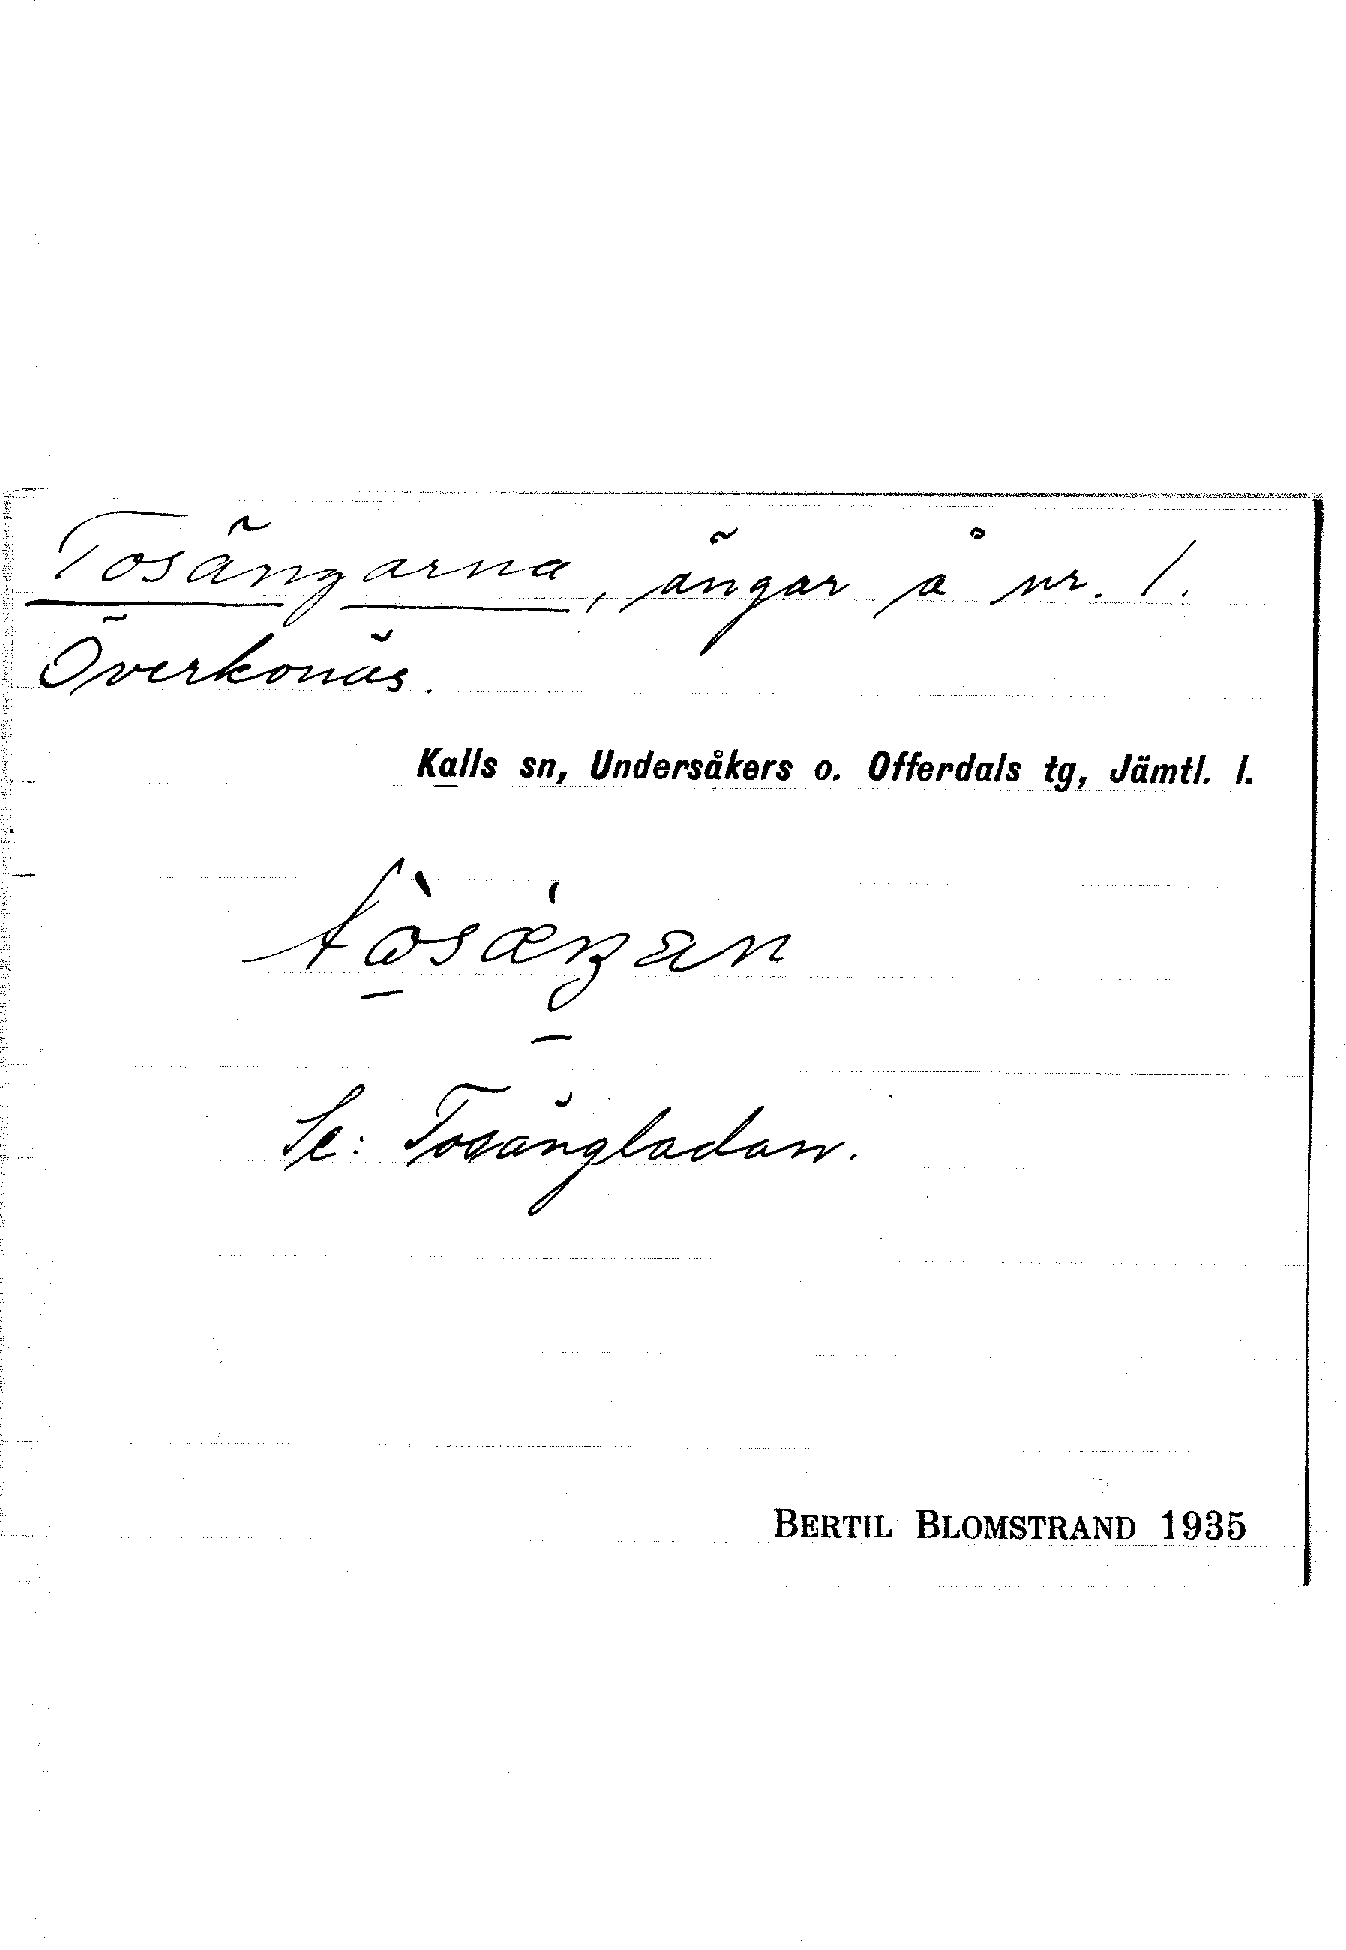 Tosängarna, ängar å nr. 1.
Överkonäs.
Kalls sn, Undersåkers o. Offerdals tg, Jämtl. l.
Se: Tosängladan.
BERTIL BLOMSTRAND 1935